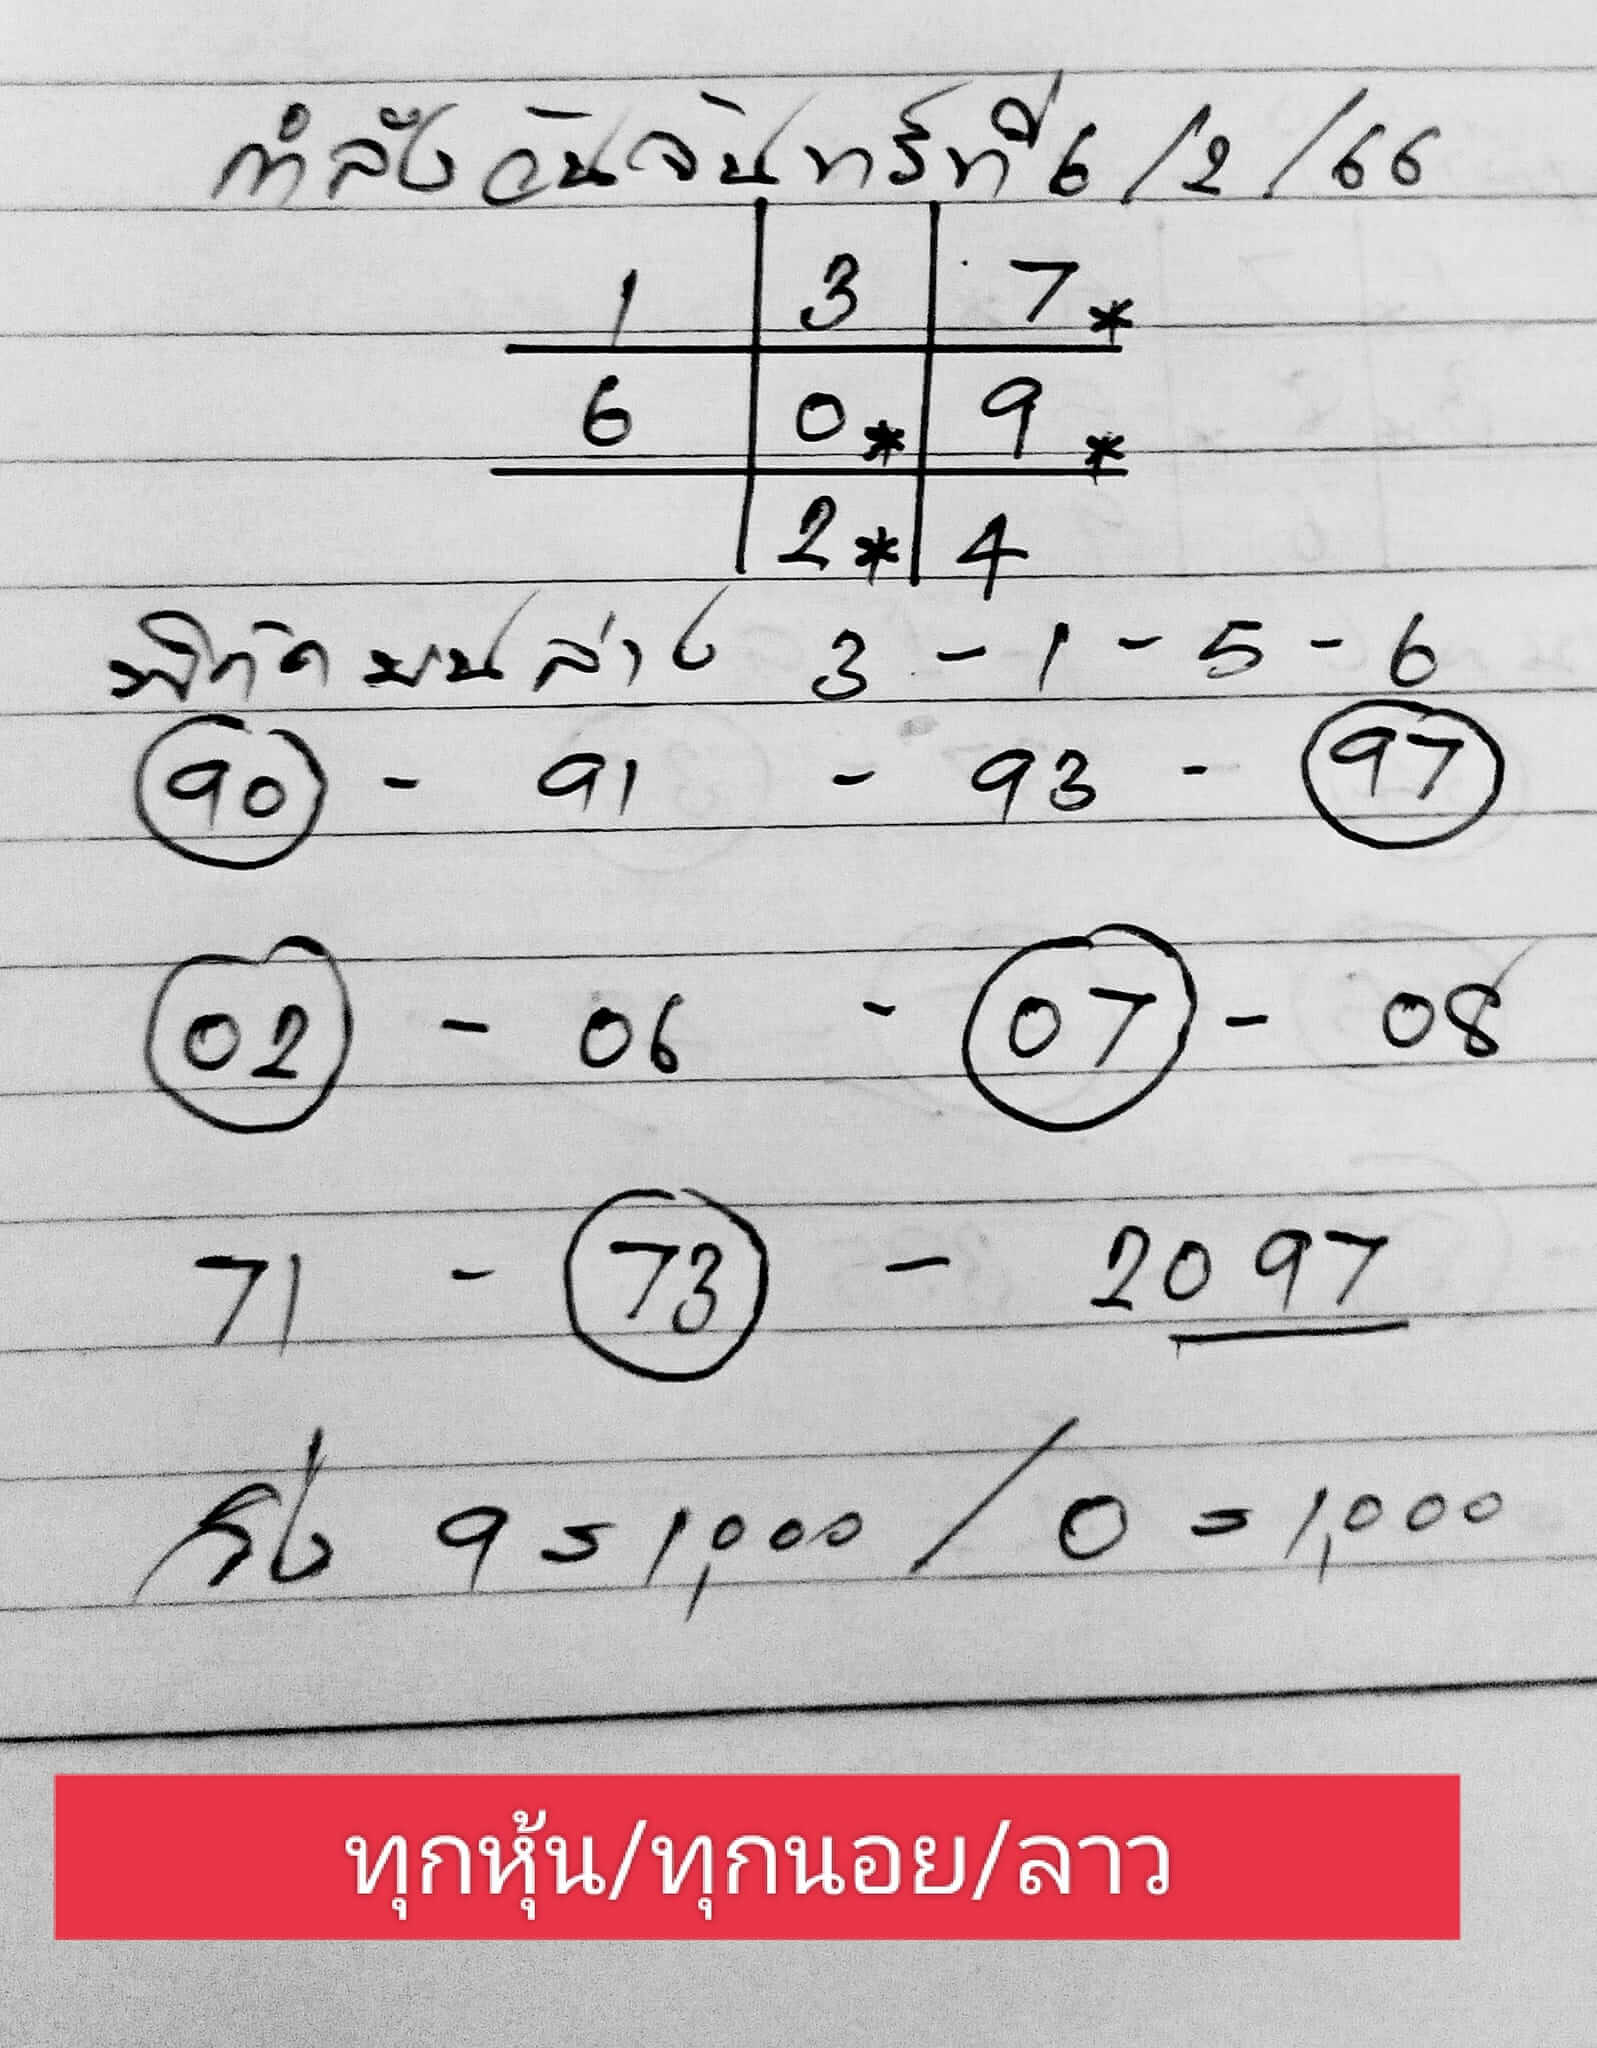 กำลังวันจันทร์ที่ 6/2/66
1 3 7*
6 0* 9*
2* 4
พิกัดบนล่าง 3-1-5-6
90 - 91 - 93 - 97
02 - 06 - 07 - 08
71 - 73 - 2097
รุ่ง 9=1,000/0=1,000
ทุกหุ้น/ทุกนอย/ลาว